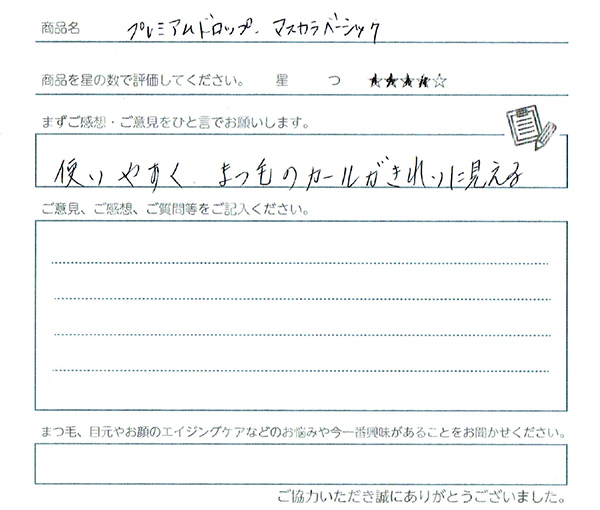 商品名 プレミアムドロップ. マスカラベーシック
商品を星の数で評価してください。 星 つ ★★★★☆
まずご感想・ご意見をひと言でお願いします。
使いやすく まつ毛のカールがきれいに見える
ご意見、ご感想、ご質問等をご記入ください。
まつ毛、目元やお顔のエイジングケアなどのお悩みや今一番興味があることをお聞かせください。
ご協力いただき誠にありがとうございました。